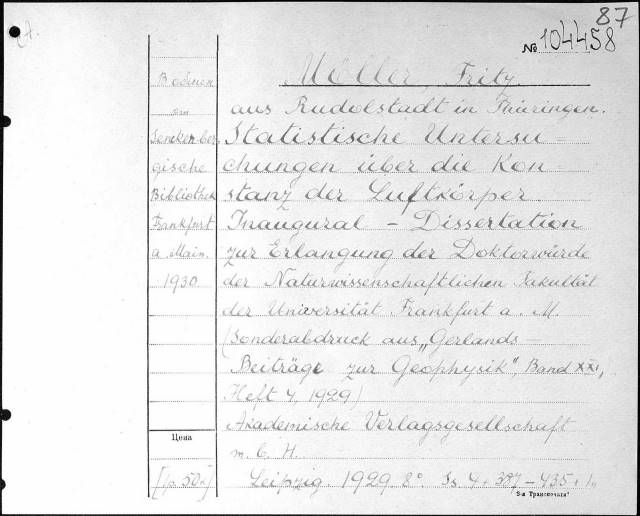 87
№ 104458
Möller, Fritz.
aus Rudolstadt in Thüringen.
Statistische Untersu=
chungen über die Kon=
stanz der Luftkörper.
Inaugural – Dissertation
zur Erlangung der Doktorwürde
der Naturwissenschaftlichen Fakultät
der Universität Frankfurt a. M.
(Sonderabdruck aus „Gerlands=
Beiträge zur Geophysik", Band XXI,
Heft 4, 1929)
Akademische Verlagsgesellschaft
m. b. H.
Leipzig. 1929. 8° Ss. 4 + 387–435 + 1
Senckenber
gische
Bibliothek
Frankfurt
a. Main.
1930
Цена
[p. 50]
3-я Транспечать"